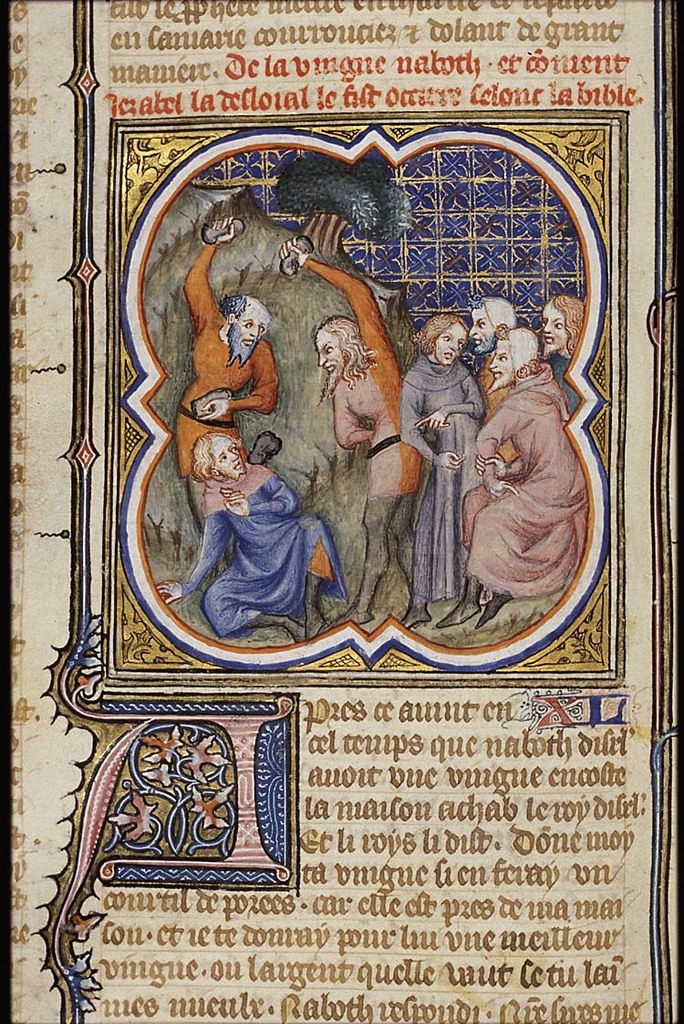 en samarie courrouciez ⁊ dolant de grant
maniere. De la vingne naboth· et cōment
Jezabel la desloial le fist occirre selont la bible.
Apres ce auint en XL
cel temps que naboth disrl'
auoit vne vingne encoste
la maison achab le roy disrl:
Et li roys li dist. Dōne moy
ta vingne si en feray vn
courtil de porees· car elle est pres de ma mai
son· et ie te donray pour lui vne meilleur
vingne· ou largent quelle vaut se tu lai
mes mieulx· Naboth respondi·